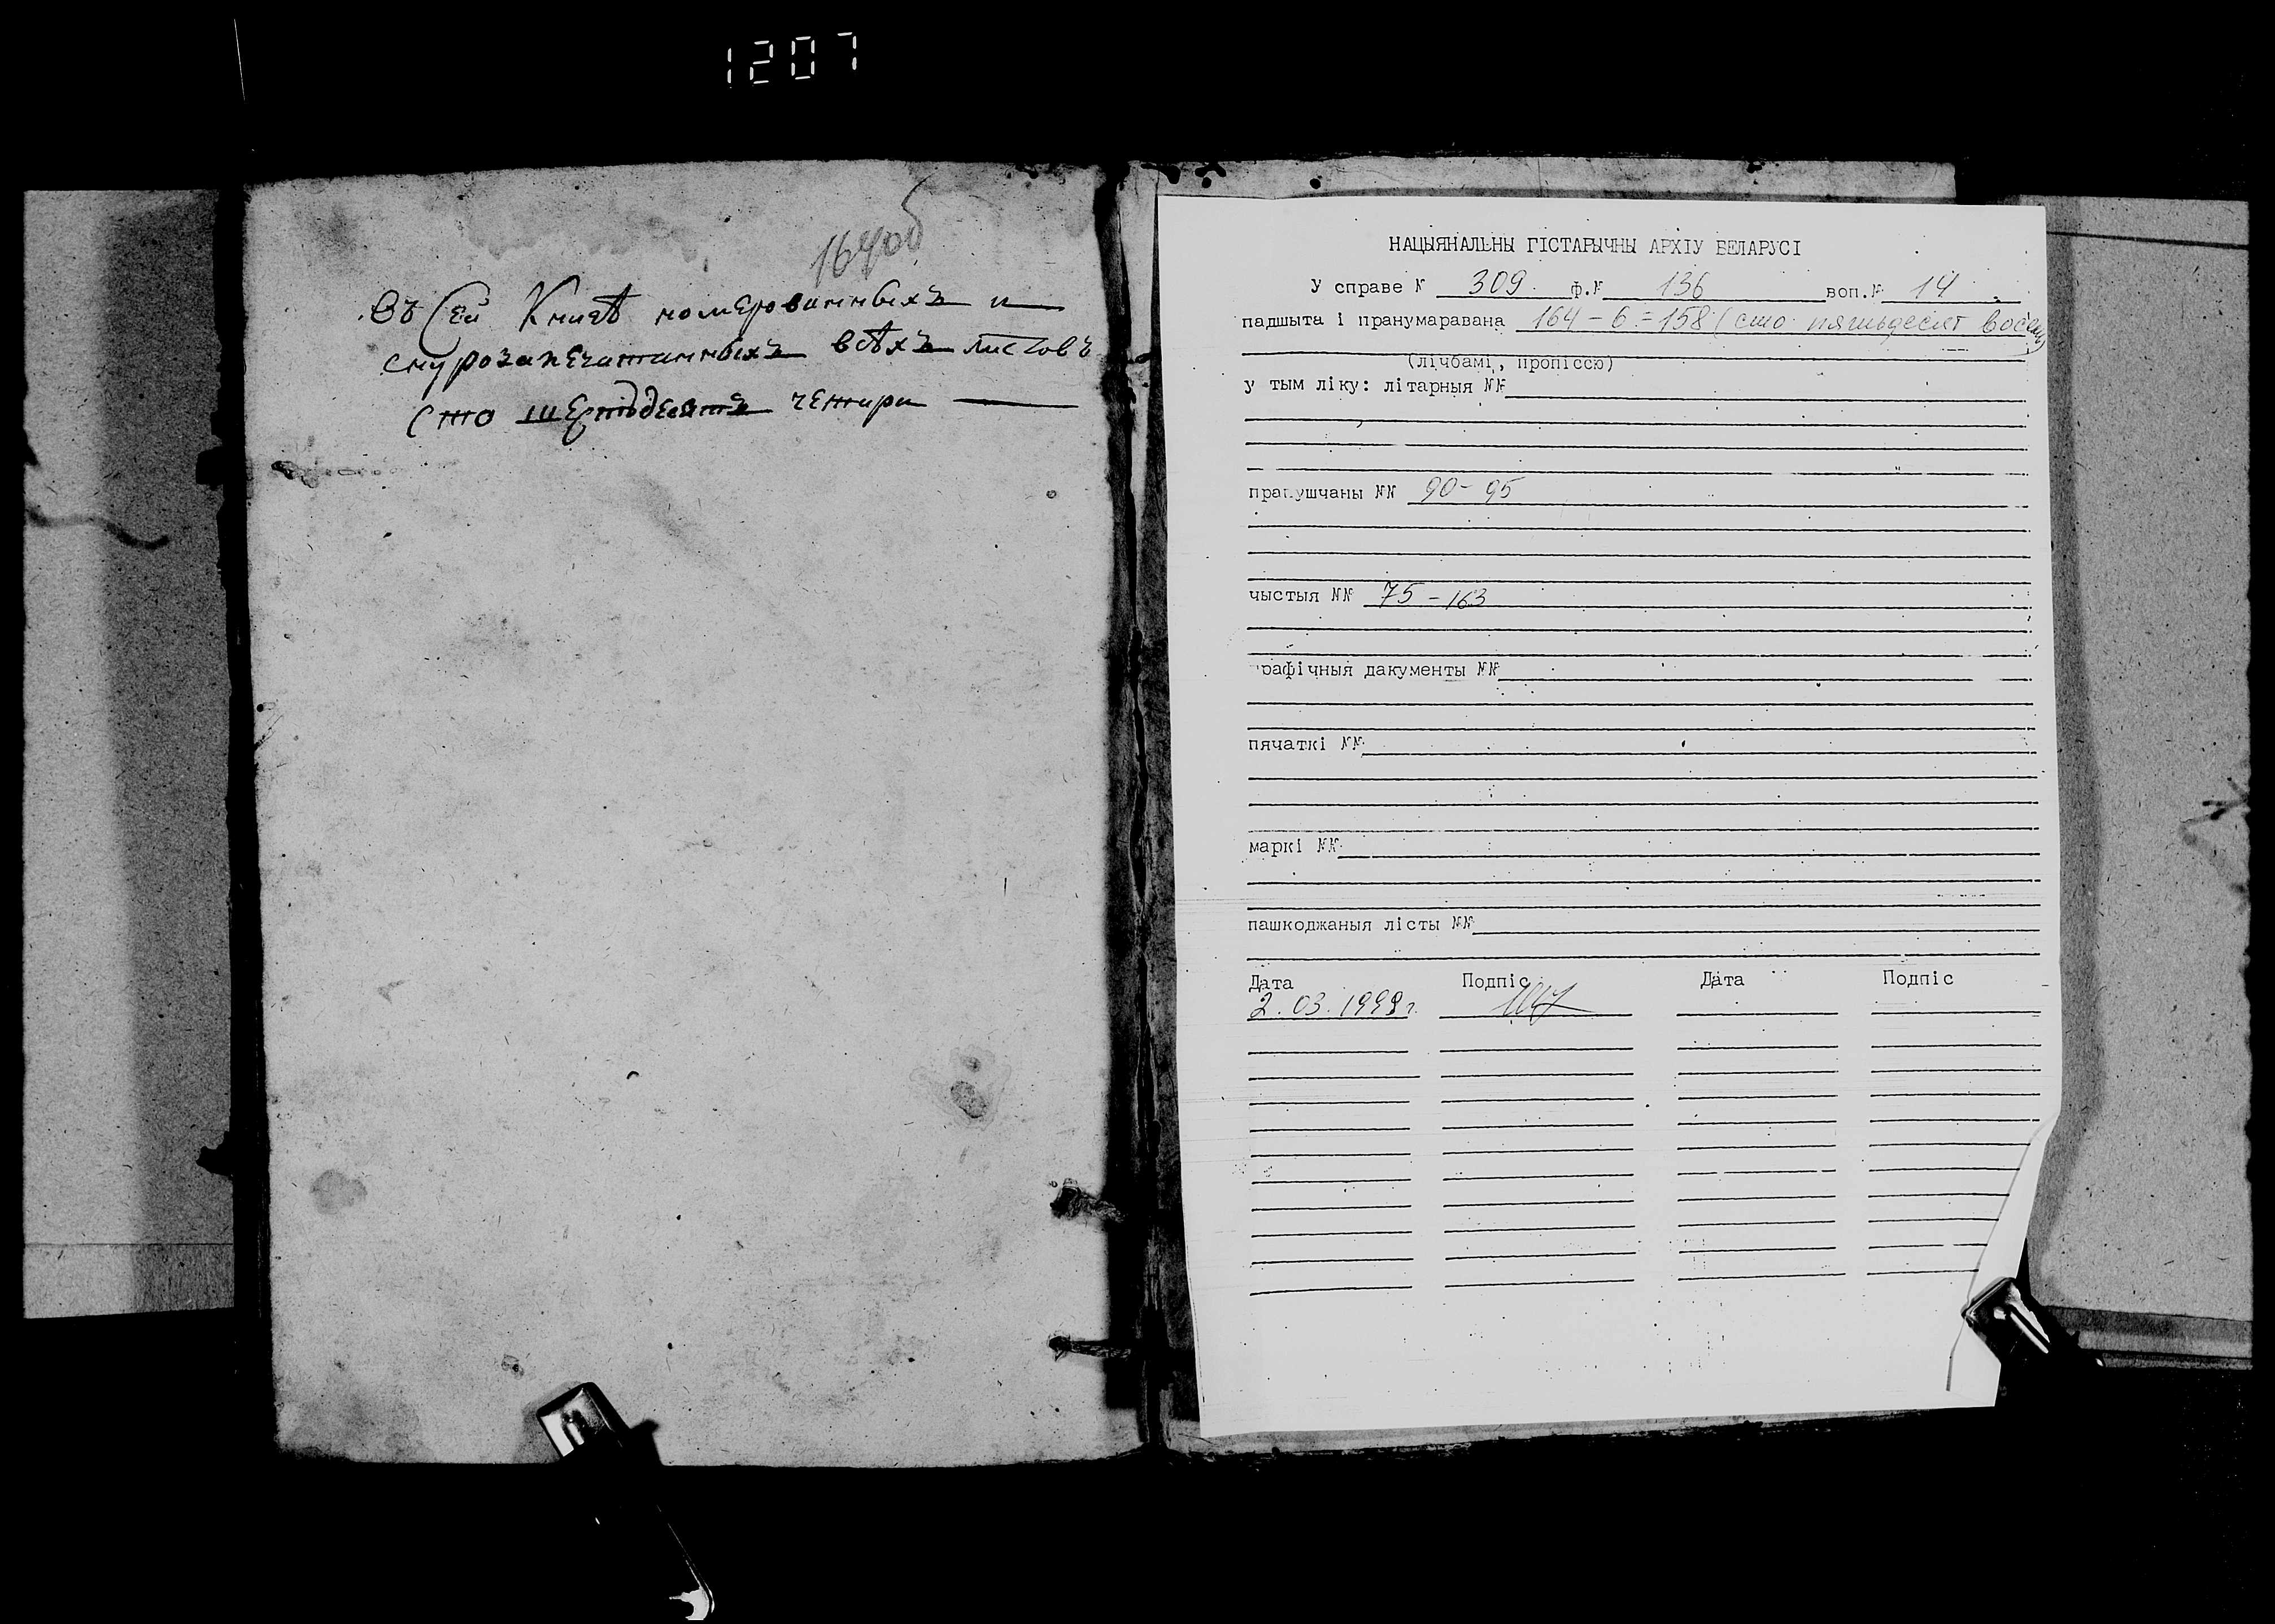 1207
164об
Въ Сей Книгѣ номерованныхъ и
снурозапечатанныхъ всѣхъ листовъ
Сто шестьдесятъ четири
НАЦЫЯНАЛЬНЫ ГІСТАРЫЧНЫ АРХІУ БЕЛАРУСІ
У справе № 309 ф.№ 136 воп.№ 14
падшыта і пранумаравана 164-6=158 (сто пятьдесят восемь)
(лічбамі, пропіссю)
у тым ліку: літарныя №№
прапушчаны №№ 90-95
чыстыя №№ 75-163
графічныя дакументы №№
пячаткі №№
маркі №№
пашкоджаныя лісты №№
Дата Подпіс Дата Подпіс
2.03.1999г.